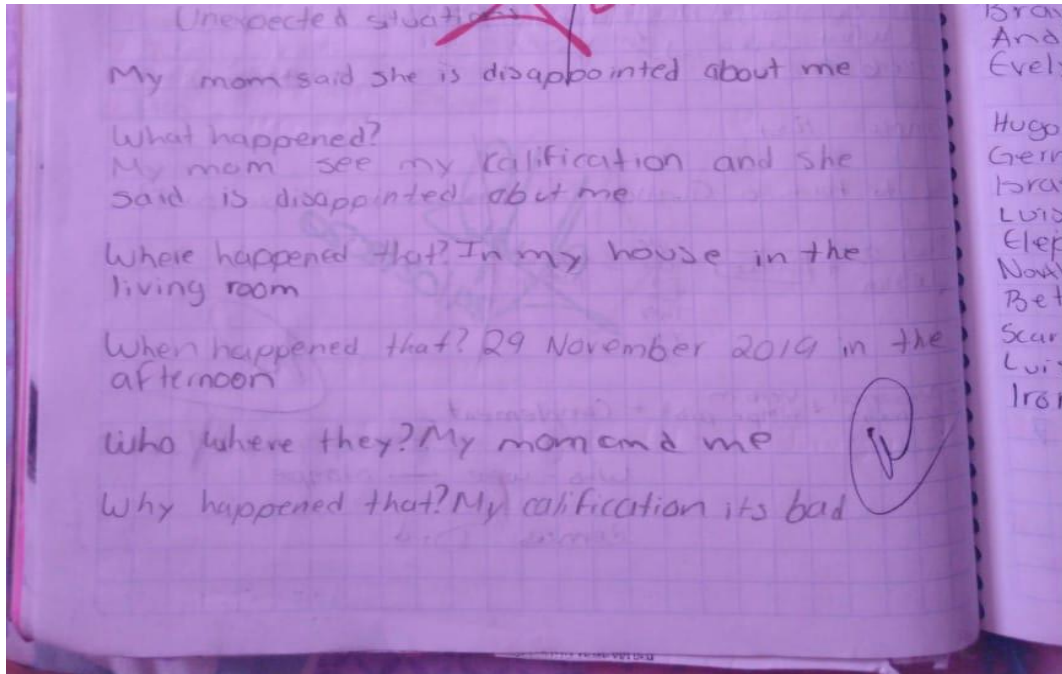 Unexpected situations
My mom said she is disappointed about me
What happened?
My mom see my calification and she
said is disappointed abut me
Where happened that? In my house in the
living room
When happened that? 29 November 2019 in the
afternoon
Who where they? My mom and me
Why happened that? My calification its bad
And
Hugo